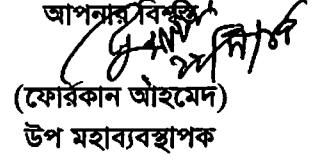 আপনার বিশ্বস্ত
(ফোরকান আহমেদ)
উপ মহাব্যবস্থাপক